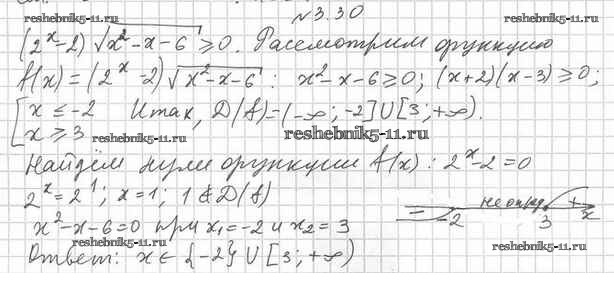 №3.30
reshebnik5-11.ru reshebnik5-11.ru
(2^x-2) √(x²-x-6) ≥ 0. Рассмотрим функцию
f(x) = (2^x-2) √(x²-x-6) : x²-x-6 ≥ 0; (x+2)(x-3) ≥ 0;
[ x ≤ -2 Итак, D(f) = (-∞; -2] ∪ [3; +∞).
x ≥ 3 reshebnik5-11.ru reshebnik5-11.ru
Найдём нули функции f(x) : 2^x-2=0
2^x = 2^1; x=1; 1 ∉ D(f)
x²-x-6=0 при x₁=-2 и x₂=3
− -2 не опред. 3 + x
reshebnik5-11.ru reshebnik5-11.ru
Ответ: x ∈ {-2} ∪ [3; +∞)